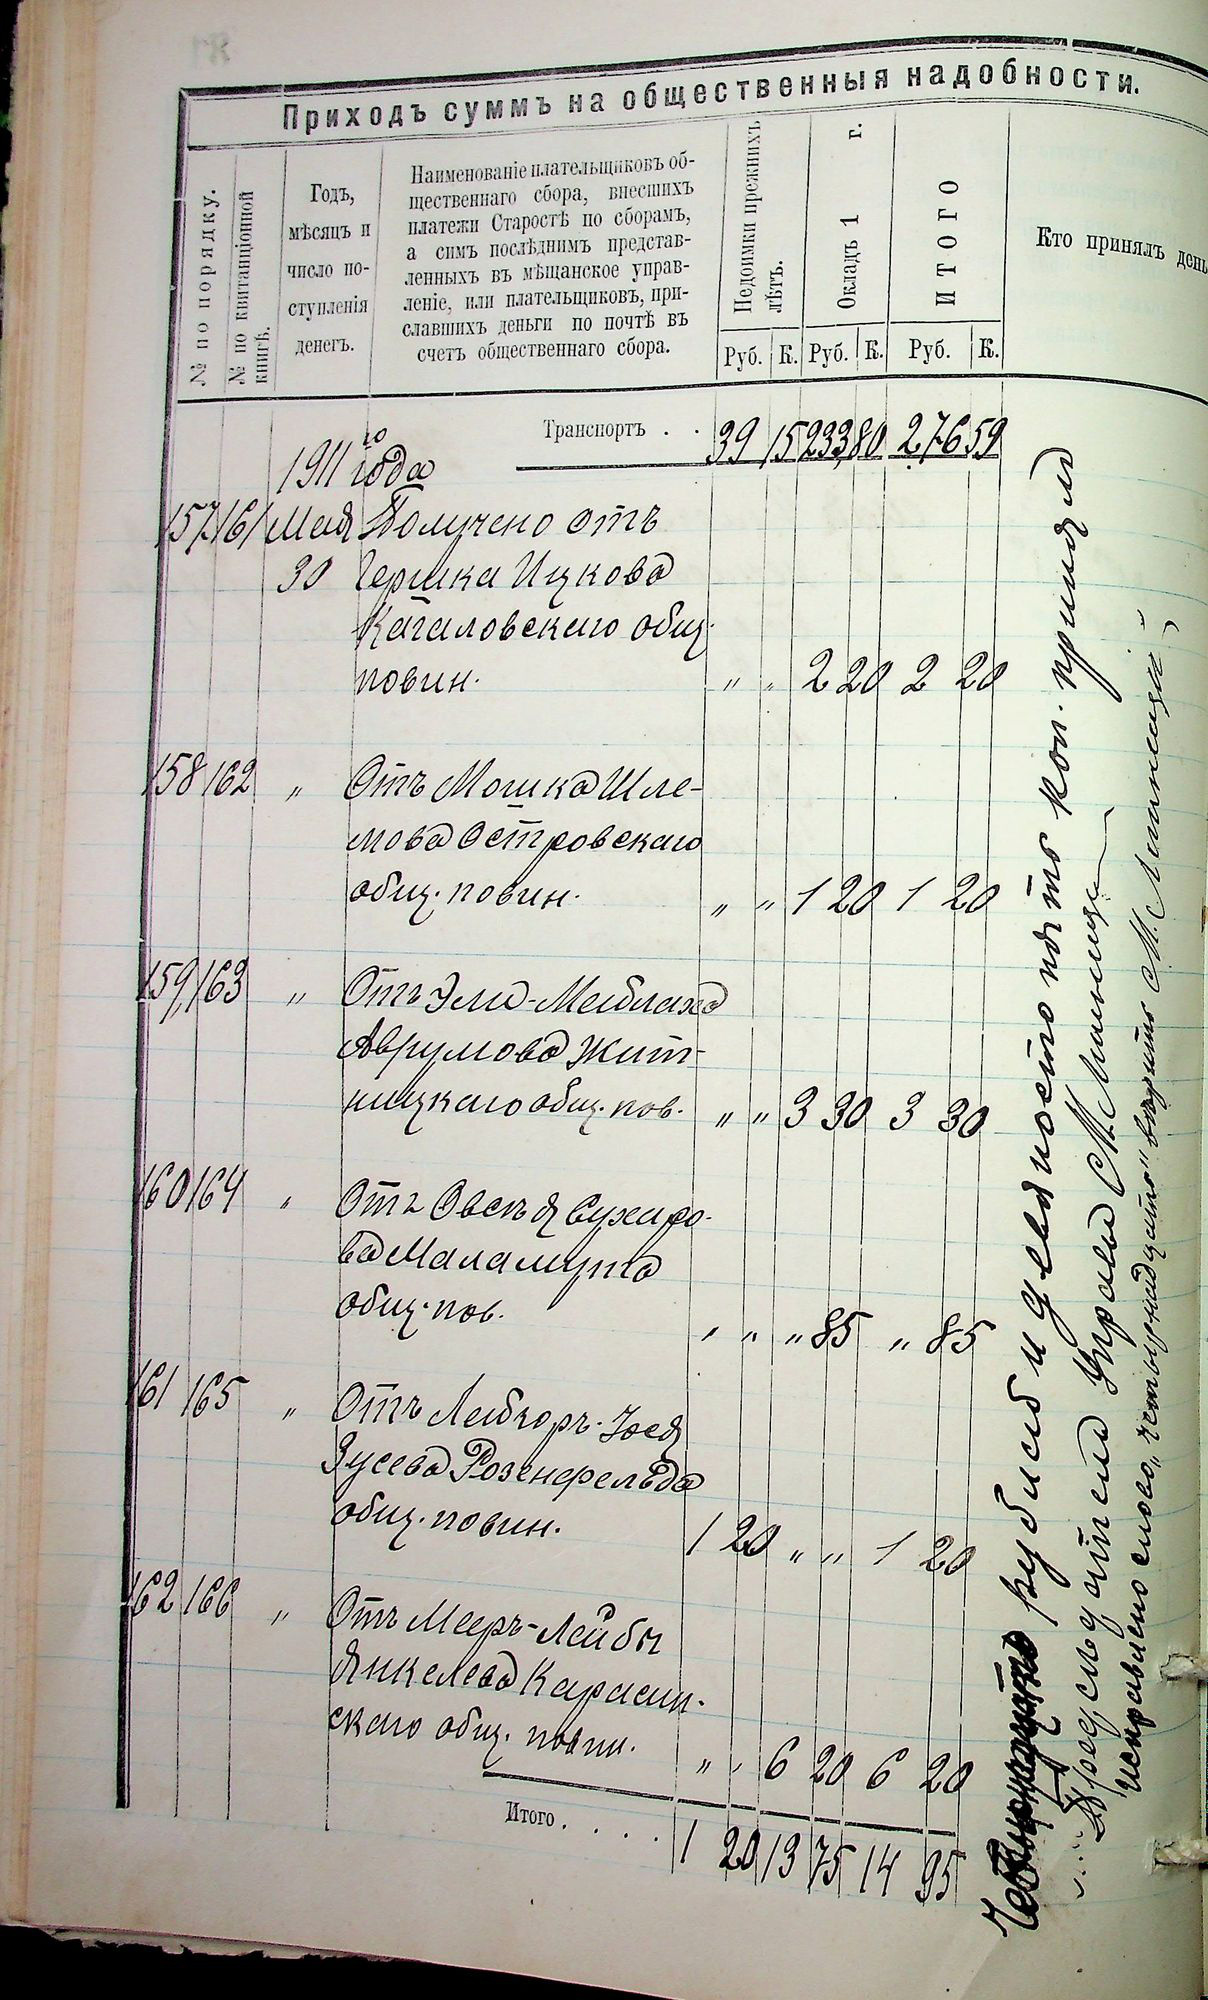 Приходъ суммъ на общественныя надобности.
№ по порядку.
№ по квитанціонной книгѣ.
Годъ,
мѣсяцъ и
число по-
ступленія
денегъ.
Наименованіе плательщиковъ об-
щественнаго сбора, внесшихъ
платежи Старостѣ по сборамъ,
а симъ послѣднимъ представ-
ленныхъ въ мѣщанское управ-
леніе, или плательщиковъ, при-
славшихъ деньги по почтѣ въ
счетъ общественнаго сбора.
Недоимки прежнихъ
лѣтъ.
Окладъ 1 г.
ИТОГО
Кто принялъ день
Руб. К. Руб. К. Руб. К.
Транспортъ . . 39 15 233 80 276 59
1911 го года
157 161 Мая Получено отъ
30 Гершка Ицкова
Кагаловскаго общ.
повин. " " 2 20 2 20
158 162 " Отъ Мошка Шле-
мова Островскаго
общ. повин. " " 1 20 1 20
159 163 " Отъ Эли-Мейлаха
Аврумова Жит-
ницкаго общ. пов. " " 3 30 3 30
160 164 " Отъ Овсѣя Сухаро-
ва Маламуда
общ. пов. " " " 85 " 85
161 165 " Отъ
Зусева Розенфельда
общ. повин. 1 20 " " 1 20
162 166 " Отъ Мееръ-Лейбы
Янкелева Карасин-
скаго общ. повин. " " 6 20 6 20
Итого . . . . 1 20 13 75 14 95
Четырнадцать рублей и девяносто пять коп. принялъ
Предсѣдатель Управы М.
Исправлено слово „четырнадцать" вѣрить М.